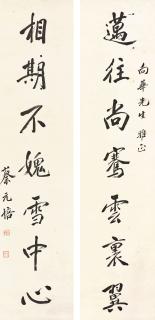 邁往尚騫雲裏翼
向華先生雅正
相期不媿雪中心
蔡元培